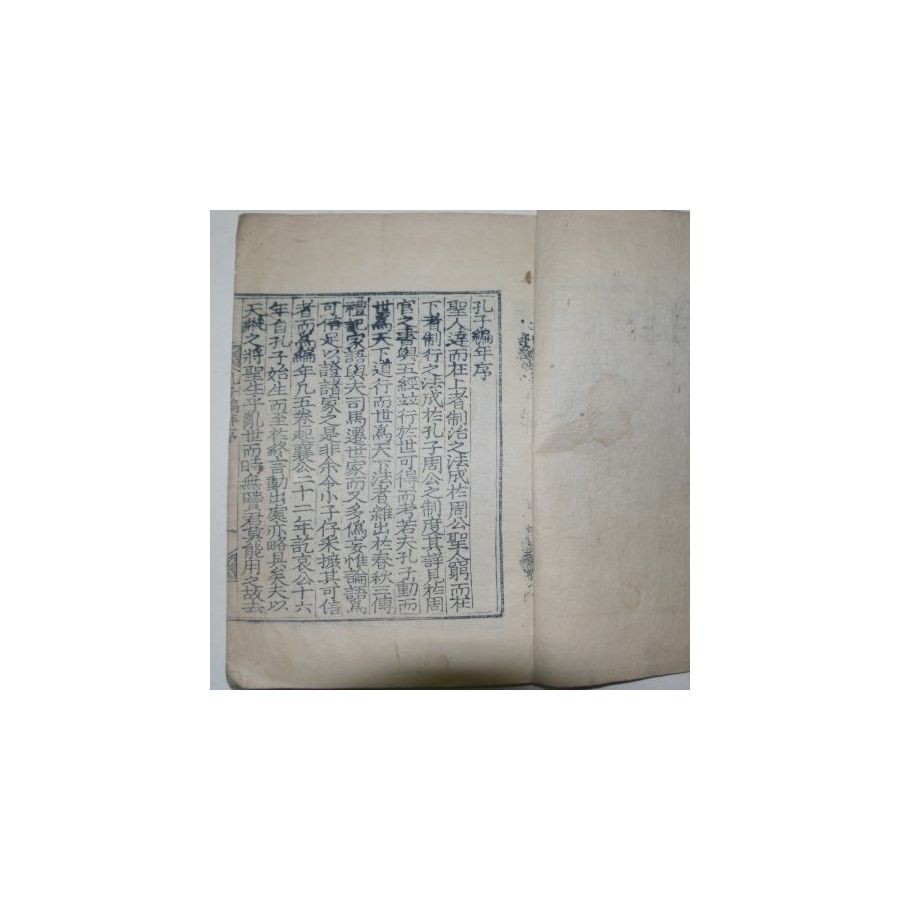 孔子編年序
聖人達而在上者制治之法成於周公聖人窮而在
下者制行之法成於孔子周公之制度其詳見於周
官之書與五經並行於世可得而考若夫孔子動而
世為天下道行而世為天下法者雜出於春秋三傳
禮記家語與夫司馬遷世家而又多偽妄惟論語為
可信足以證諸家之是非余令小子仔采摭其可信
者而為編年凡五卷起襄公二十二年訖哀公十六
年自孔子始生而至於終言動出處亦略具矣夫以
天縱之將聖生乎亂世而時無賢君莫能用之故去